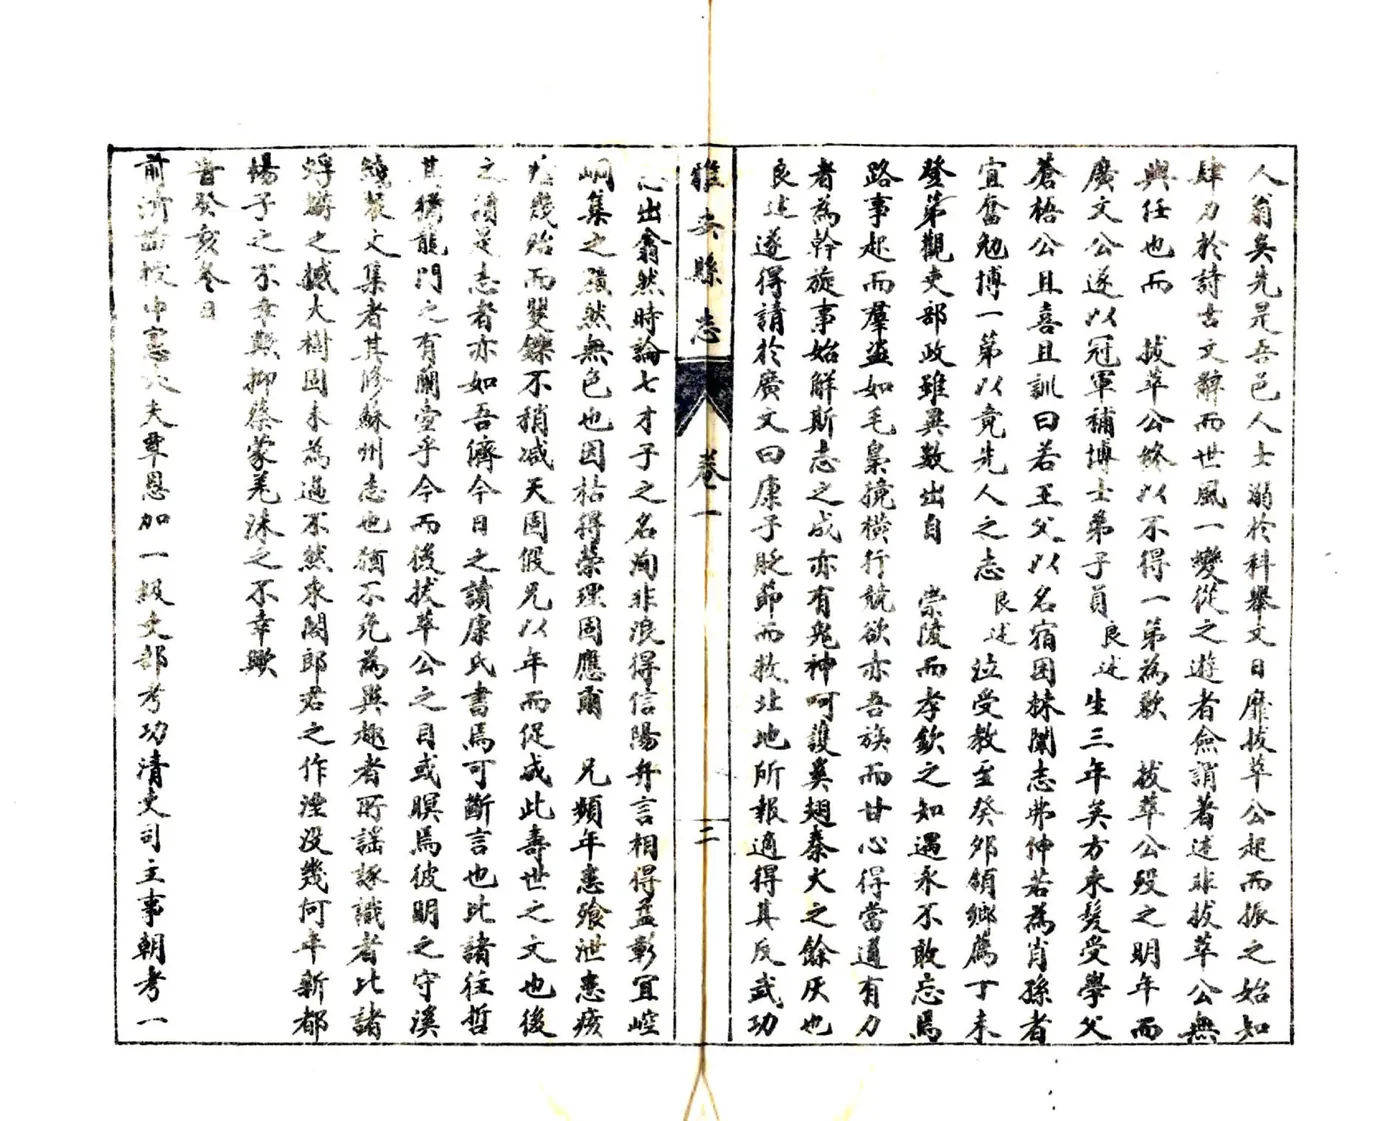 人翁矣先是吾邑人士溺於科舉文日靡拔萃公起而振之始知
肆力於詩古文辭而世風一變從之遊者僉謂著述非拔萃公無
與任也而 拔萃公終以不得一第為歉 拔萃公歿之明年而
廣文公遂以冠軍補博士弟子員良述生三年矣方束髮受學父
蒼梧公且喜且訓曰若王父以名宿困棘闈志弗伸若為肖孫者
宜奮勉博一第以竟先人之志良述泣受教至癸卯領鄉薦丁未
登第觀吏部政雖異數出自 崇陵而孝欽之知遇永不敢忘焉
路事起而羣盜如毛梟獍橫行競欲亦吾族而甘心得當道有力
者為幹旋事始解斯志之成亦有鬼神呵護奚翅秦火之餘灰也
良述遂得請於廣文曰康子貶節而救北地所報適得其反武功
雅安縣志 卷一 二
志出翕然時論七才子之名洵非浪得信陽弁言相得益彰宜崆
峒集之殞然無色也因枯得榮理固應爾 兄頻年患飱泄患痰
幾殆而矍鑠不稍減天固假兄以年而促成此壽世之文也後
之讀是志者亦如吾儕今日之讀康氏書焉可斷言也此諸往哲
其猶龍門之有蘭臺乎今而後拔萃公之目或瞑焉彼明之守溪
文集者其修蘇州志也猶不免為異趣者所謠諑識者比諸
蜉蝣之撼大樹固未為過不然永閣郎君之作湮沒幾何年新都
楊子之不幸歟抑蔡蒙羌沫之不幸歟
昔癸亥冬日
前濟中憲大夫覃恩加一級吏部考功清吏司主事朝考一